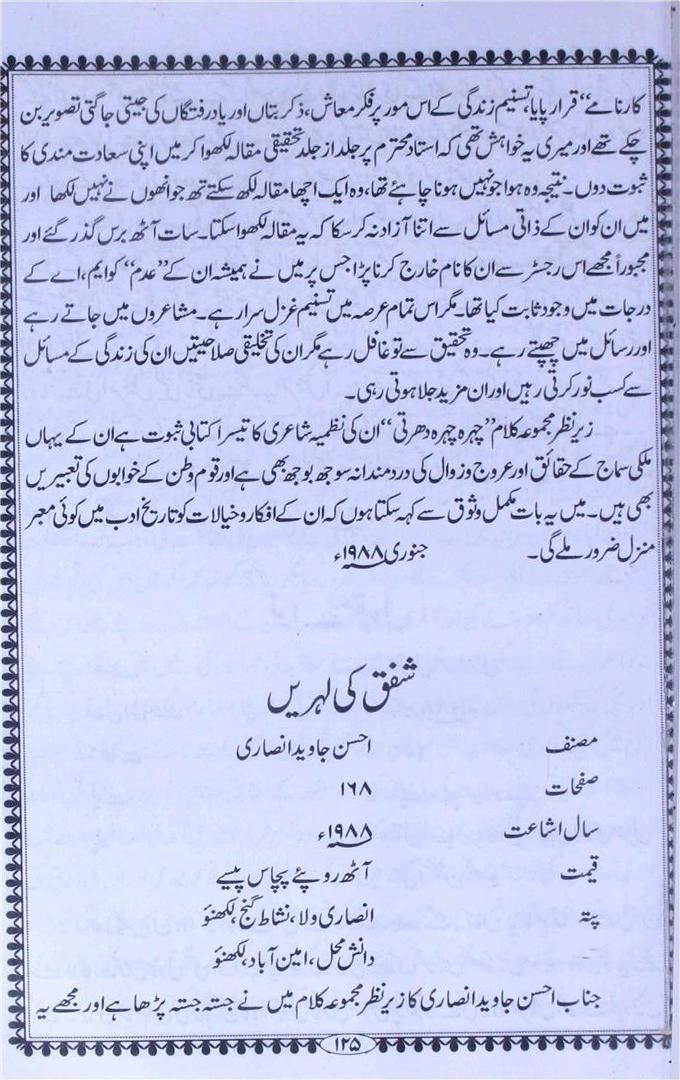 کارنامے‘‘ قرار پایا، تسنیم زندگی کے اس مور پر فکر معاش، ذکر بتاں اور یاد رفتگاں کی جیتی جاگتی تصویر بن
چکے تھے اور میری یہ خواہش تھی کہ استاد محترم پر جلد از جلد تحقیقی مقالہ لکھوا کر میں اپنی سعادت مندی کا
ثبوت دوں۔ نتیجہ وہ ہوا جو نہیں ہونا چاہئے تھا، وہ ایک اچھا مقالہ لکھ سکتے تھ جو انھوں نے نہیں لکھا اور
میں ان کو ان کے ذاتی مسائل سے اتنا آزاد نہ کر سکا کہ یہ مقالہ لکھوا سکتا۔ سات آٹھ برس گذر گئے اور
مجبوراً مجھے اس رجسٹر سے ان کا نام خارج کرنا پڑا جس پر میں نے ہمیشہ ان کے ’’عدم‘‘ کو ایم، اے کے
درجات میں وجود ثابت کیا تھا۔ مگر اس تمام عرصہ میں تسنیم غزل سرار ہے۔ مشاعروں میں جاتے رہے
اور رسائل میں چھپتے رہے۔ وہ تحقیق سے تو غافل رہے مگر ان کی تخلیقی صلاحیتیں ان کی زندگی کے مسائل
سے کسب نور کرتی رہیں اور ان مزید جلا ہوتی رہی۔
زیر نظر مجموعہ کلام ’’چہرہ چہرہ دھرتی‘‘ ان کی نظمیہ شاعری کا تیسرا کتابی ثبوت ہے ان کے یہاں
ملکی سماج کے حقائق اور عروج و زوال کی دردمندانہ سوجھ بوجھ بھی ہے اور قوم و وطن کے خوابوں کی تعبیریں
بھی ہیں۔ میں یہ بات مکمل وثوق سے کہہ سکتا ہوں کہ ان کے افکار و خیالات کو تاریخ ادب میں کوئی معتبر
منزل ضرور ملے گی۔ جنوری ۱۹۸۸ء
شفق کی لہریں
مصنف احسن جاوید انصاری
صفحات ۱۶۸
سال اشاعت ۱۹۸۸ء
قیمت آٹھ روپئے پچاس پیسے
پتہ انصاری ولا، نشاط گنج، لکھنؤ
دانش محل، امین آباد، لکھنؤ
جناب احسن جاوید انصاری کا زیر نظر مجموعہ کلام میں نے جستہ جستہ پڑھا ہے اور مجھے یہ
۱۲۵